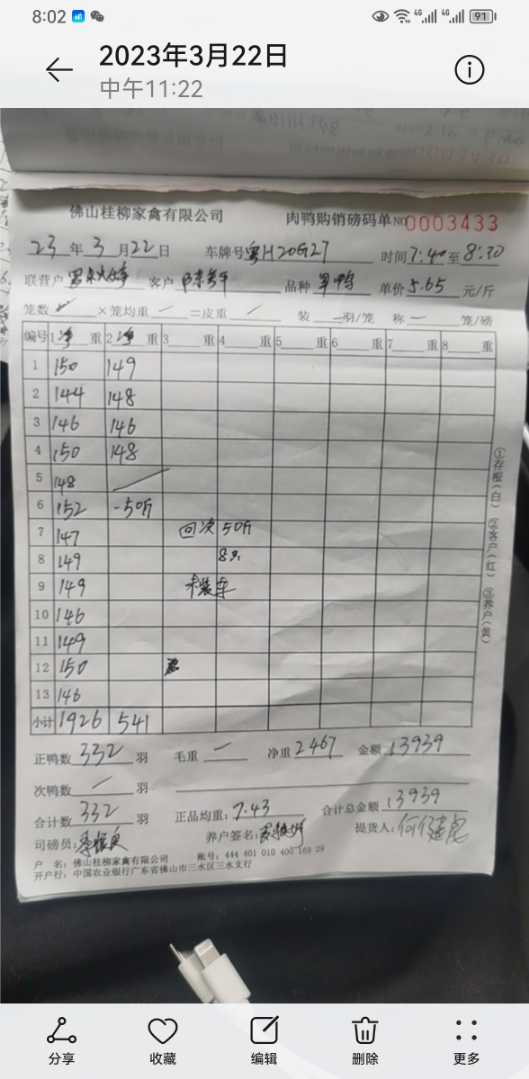 8:02 4G 4G 91
2023年3月22日
中午11:22
佛山桂柳家禽有限公司 肉鸭购销磅码单 NO 0003433
23年3月22日 车牌号粤H20G27 时间7:40至8:30
联营户 客户 品种 单价5.65元/斤
笼数 ×笼均重 =皮重 装 羽/笼 称 笼/磅
编号 1净重 2净重 3重 4重 5重 6重 7重 8重
1 150 149
2 144 148
3 146 146
4 150 148
5 148
6 152 -50斤
7 147 回次50斤
8 149 8只
9 149 卡装车
10 146
11 149
12 150
13 146
小计 1926 541
①存根(白) ②客户(红) ③养户(黄)
正鸭数332羽 毛重 净重2467 金额13939
次鸭数 羽
合计数332羽 正品均重:7.43 合计总金额13939
司磅员: 养户签名: 提货人:
户 名:佛山桂柳家禽有限公司 账号:444 601 010 400 169 28
开户行:中国农业银行广东省佛山市三水区三水支行
分享 收藏 编辑 删除 更多